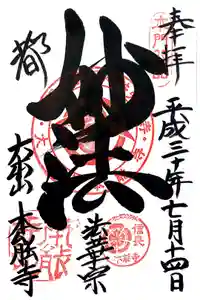 奉拝
平成三十年七月十四日
妙法
法華宗
都
大本山
本能寺
信長